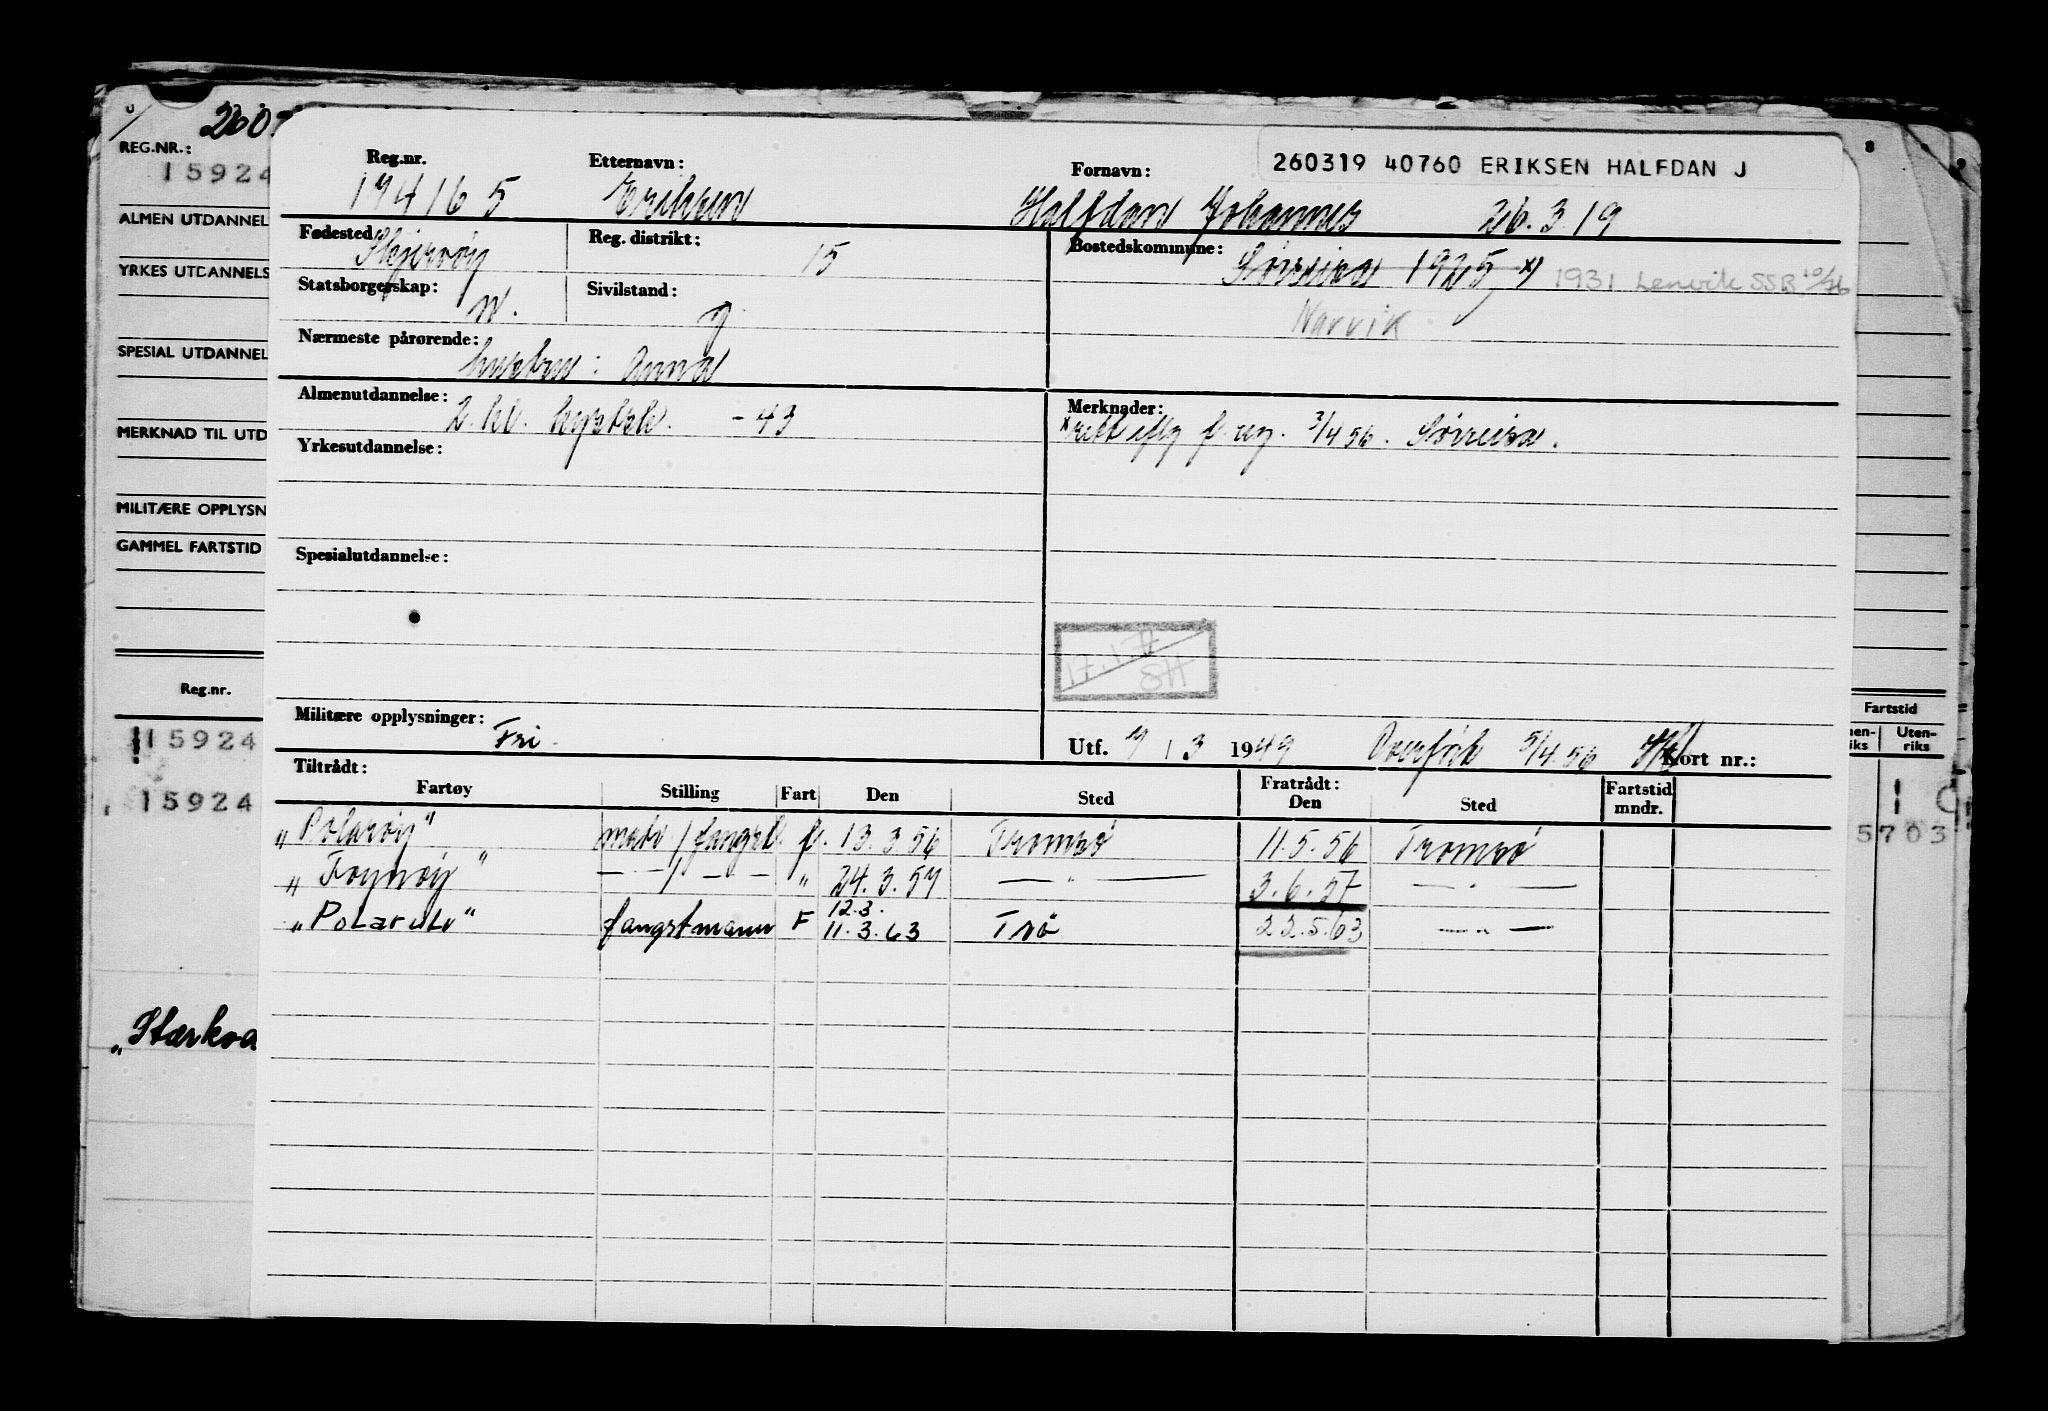 260
REG.NR.:
15924
ALMEN UTDANNEL
YRKES UTDANNELS
SPESIAL UTDANNEL
MERKNAD TIL UTD
MILITÆRE OPPLYSN
GAMMEL FARTSTID
Reg.nr.
15924
15924
„Stærkoa
260319 40760 ERIKSEN HALFDAN J
Reg.nr. Etternavn: Fornavn:
194165 Eriksen Halfdan Johannes 26.3.19
Fødested Skjervøy Reg. distrikt: 15 Bostedskommune: Sørreisa 1925 x) 1931 Lenvik SSB 10/76
Statsborgerskap: n. Sivilstand: g. Narvik
Nærmeste pårørende: hustru: Anna
Almenutdannelse: 2 kl. -43
Merknader:
x rett iflg f. reg. 3/4 56. Sørreisa.
Yrkesutdannelse:
Spesialutdannelse:
17.1.77
SH
Militære opplysninger: Fri.
Utf. 7/3 1949 Overført 5/4.56 Kort nr.:
Tiltrådt: Fratrådt: Fartstid
Fartøy Stilling Fart Den Sted Den Sted mndr.
„Polarøy" matr/fangstm. f. 13.3.56 Tromsø 11.5.56 Tromsø
„Foynøy" — — / — — " 24.3.57 — " — 3.6.57 — " —
12.3.
„Polarulv" fangstmann F 11.3.63 Trø 22.5.63 — " —
8
9
Fartstid
nen-
riks
Uten-
riks
1
5703